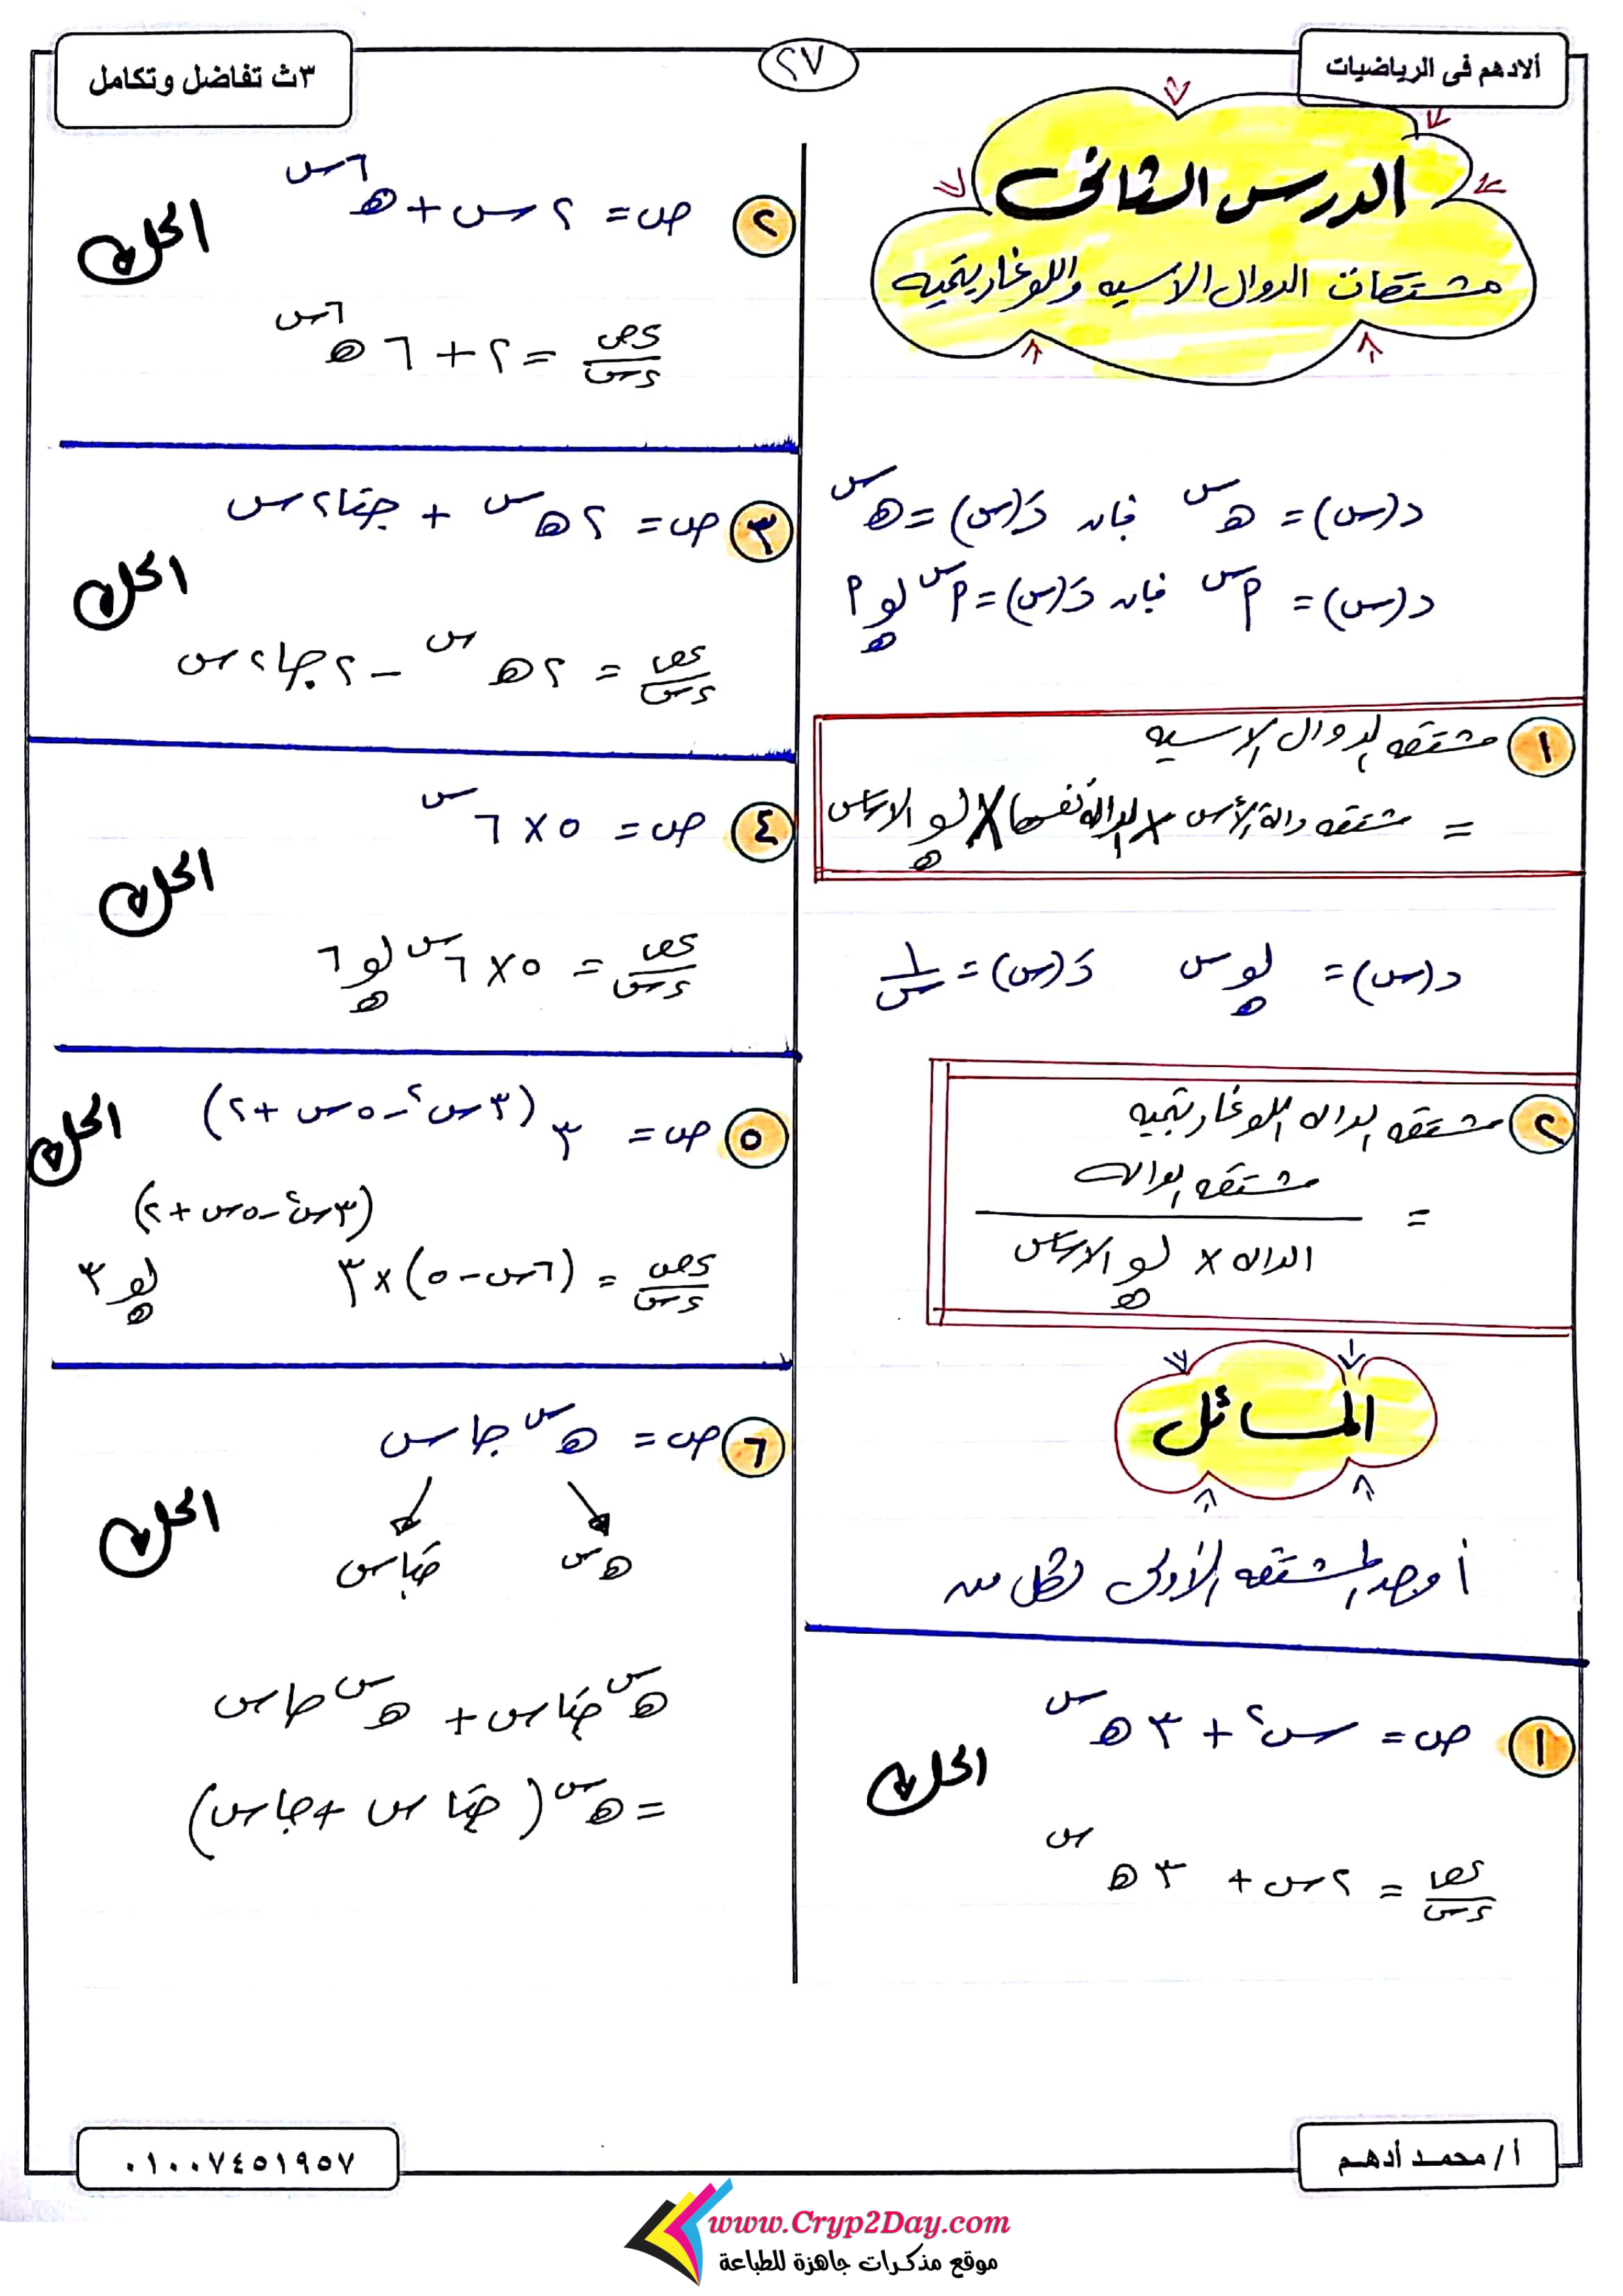 ألادهم فى الرياضيات
٢٧
٣ث تفاضل وتكامل
الدرس الثانى
مشتقات الدوال الأسيه واللوغاريتميه
د(س) = هـ^س فإن دَ(س) = هـ^س
د(س) = أ^س فإن دَ(س) = أ^س لو_هـ أ
١ مشتقه الدوال الاسيه
= مشتقه دالة الأس × الدالة نفسها × لو_هـ الاساس
د(س) = لو_هـ س دَ(س) = ١/س
٢ مشتقه الداله اللوغاريتميه
= مشتقه الداله / الداله × لو_هـ الاساس
المسائل
أوجد المشتقه الأولى لكل من
١ ص = س^٢ + ٣هـ^س
الحل
ءص/ءس = ٢س + ٣هـ^س
٢ ص = ٢س + هـ^٦س
الحل
ءص/ءس = ٢ + ٦هـ^٦س
٣ ص = ٢هـ^س + جتا٢س
الحل
ءص/ءس = ٢هـ^س − ٢جا٢س
٤ ص = ٥ × ٦^س
الحل
ءص/ءس = ٥ × ٦^س لو_هـ ٦
٥ ص = ٣^(٣س^٢ − ٥س + ٢)
الحل
ءص/ءس = (٦س − ٥) × ٣^(٣س^٢ − ٥س + ٢) لو_هـ ٣
٦ ص = هـ^س جاس
الحل
هـ^س جتاس
هـ^س جتاس + هـ^س جاس
= هـ^س (جتاس + جاس)
أ / محمد أدهم
٠١٠٠٧٤٥١٩٥٧
www.Cryp2Day.com
موقع مذكرات جاهزة للطباعة